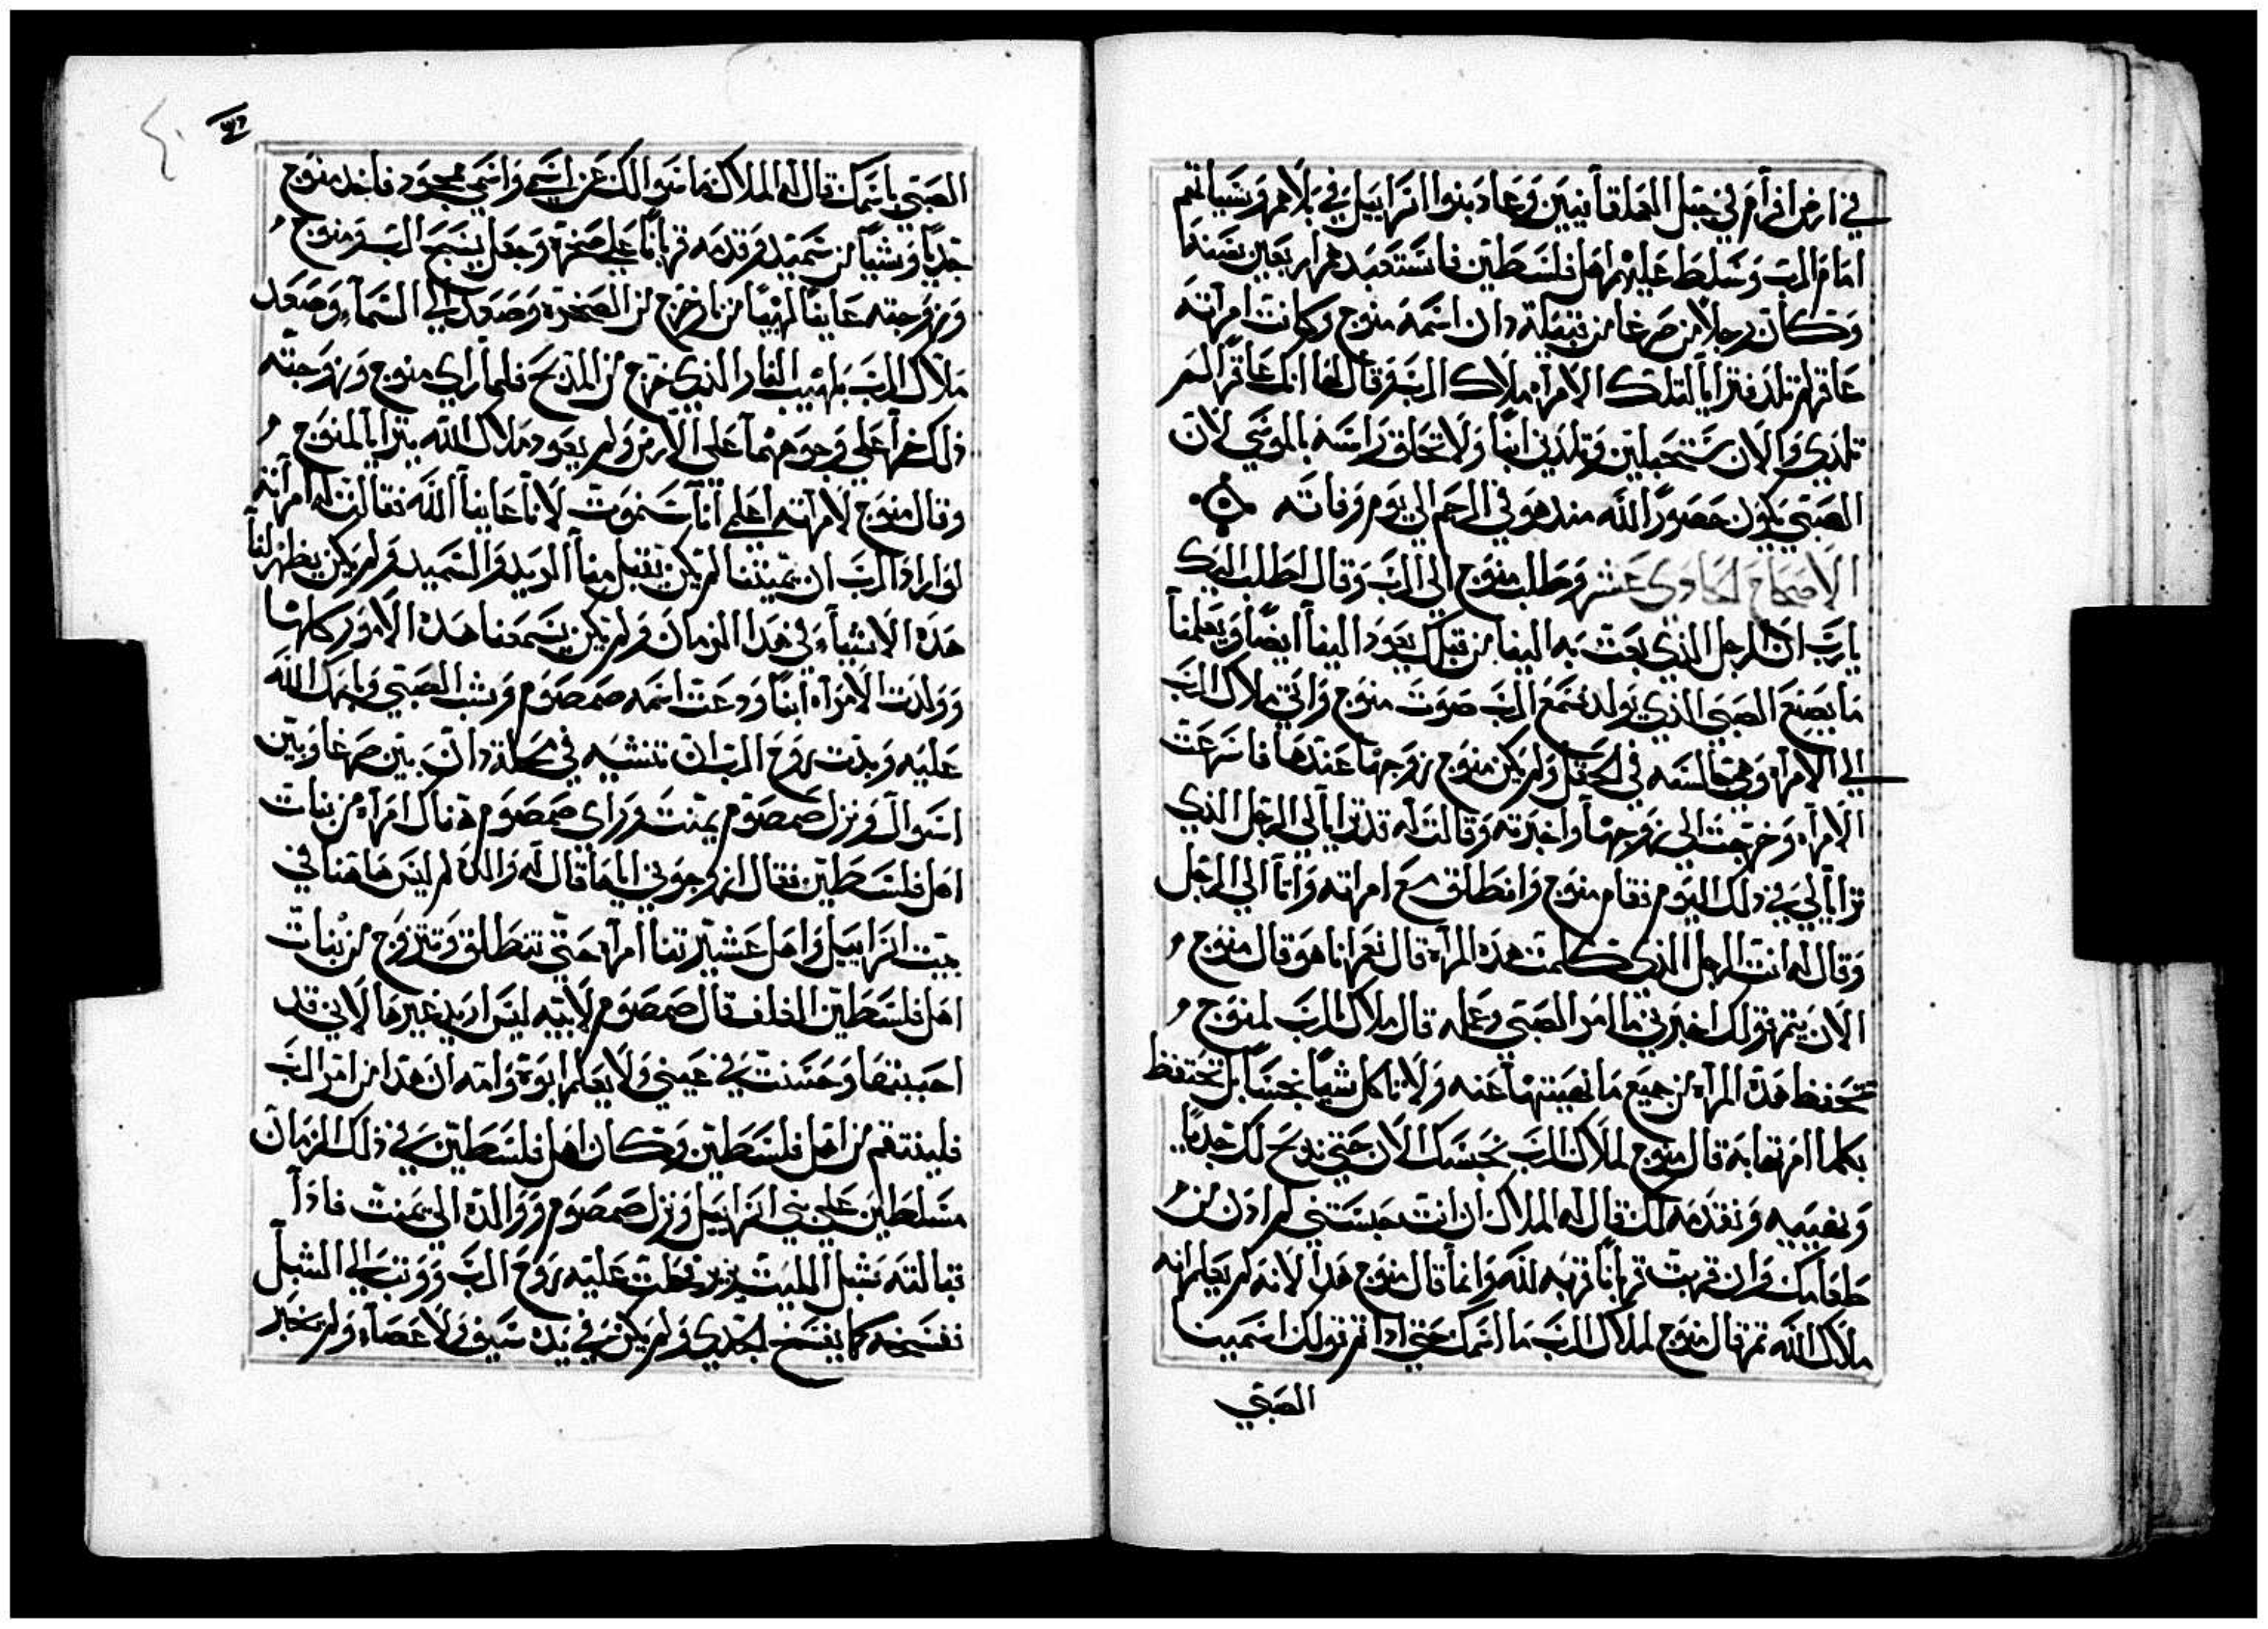 في ارض افرام في جبل العملقانيين وعاد بنوا اسراييل في بلاهم وسياتهم
امام الرب وسلط عليهم اهل فلسطين فاستعبدهم اربعين سنه
وكان رجلا من صرغا من قبيلة دان اسمه منوح وكانت امراته
عاقر لم تلد فترايا لتلك الامراه ملاك الرب وقال لها انك عاقر لم
تلدي والان ستحبلين وتلدين ابنا ولا تحلق راسه بالموسي لان
الصبي يكون حصورا لله مند هو في الرحم الي يوم وفاته
الاصحاح الحادي عشر وطلب منوح الي الرب وقال اطلب اليك
يارب ان الرجل الذي بعت به الينا من قبلك يعود الينا ايضا ويعلمنا
ما يصنع الصبي الذي يولد فسمع الرب صوت منوح واتي ملاك الرب
الي الامراه وهي جالسه في الحقل ولم يكن منوح زوجها عندها فاسرعت
الامراه وخرجت الي زوجها واخبرته وقالت له قد ترايا لي الرجل الذي
ترايا لي في ذلك اليوم فقام منوح وانطلق مع امراته واتا الي الرجل
وقال له انت الرجل الذي كلمت هده المراه قال نعم انا هو قال منوح
الان يتم قولك اخبرني ما امر الصبي وعمله قال ملاك الرب لمنوح
تتحفظ هدة المراه من جميع ما نهيتها عنه ولا تاكل شيا نجسا بل تحتفظ
بكلما امرتها به قال منوح لملاك الرب نحبسك الان حتي ندبح لك جديا
ونقدمه لك قال له الملاك ان انت حبستني لم ادق من
طعامك وان قربت قربانا قربه لله وانما قال منوح هدا لانه لم يعلم انه
ملاك الله تم قال منوح لملاك الرب ما اسمك حتي ادا تم قولك اسمينا
الصبي
الصبي باسمك قال له الملاك ما سوالك عن اسمي واسمي ممجود فاخد منوح
جديا وشيا من سميد وقدمه قربانا علي صخرة وجعل يسبح الرب ومنوح
وزوجته عاينا لهيبا من نار خرج من الصخرة وصعد الي السماء وصعد
ملاك الرب بلهيب النار الذي خرج من المدبح فلما راي منوح وزوجته
ذلك خرا علي وجوههما علي الارض ولم يعود ملاك الله يترايا لمنوح
وقال منوح لامراته اعلمي اننا سنموت لانا عاينا الله فقالت له امراته
لو اراد الرب ان يميتنا لم يكن يقبل منا والسميد ولم يكن يظهر لنا
هده الاشياء في هدا الزمان ولم يكن يسمعنا هده الامور كلها
وولدت الامراه ابنا ودعت اسمه صمصوم وشب الصبي وبارك الله
عليه وبدت روح الرب ان تنشيه في محلة دان بين صرغا وبين
اسوال ونزل صمصوم يمنت وراي صمصوم هناك امراه من بنات
اهل فلسطين فقال زوجوني اياها قال له والده لم ليس هاهنا في
بيت اسراييل واهل عشيرتنا امراه حتي تنطلق وتتزوج من بنات
اهل فلسطين الغلف قال صمصوم لابيه ليس اريد غيرها لاني قد
احببتها وحسنت في عيني ولا يعلم ابوة وامه ان هدا من امر الرب
فلينتقم من اهل فلسطين وكان اهل فلسطين في ذلك الزمان
مسلطين علي بني اسراييل ونزل صمصوم ووالده الي يمنت فادا
قبالته شبل الليت يزير فحلت عليه روح الرب ووتب الي الشبل
ففسخه كما يفسخ الجدي ولم يكن في يده سيف ولا عصاء ولم يخبر